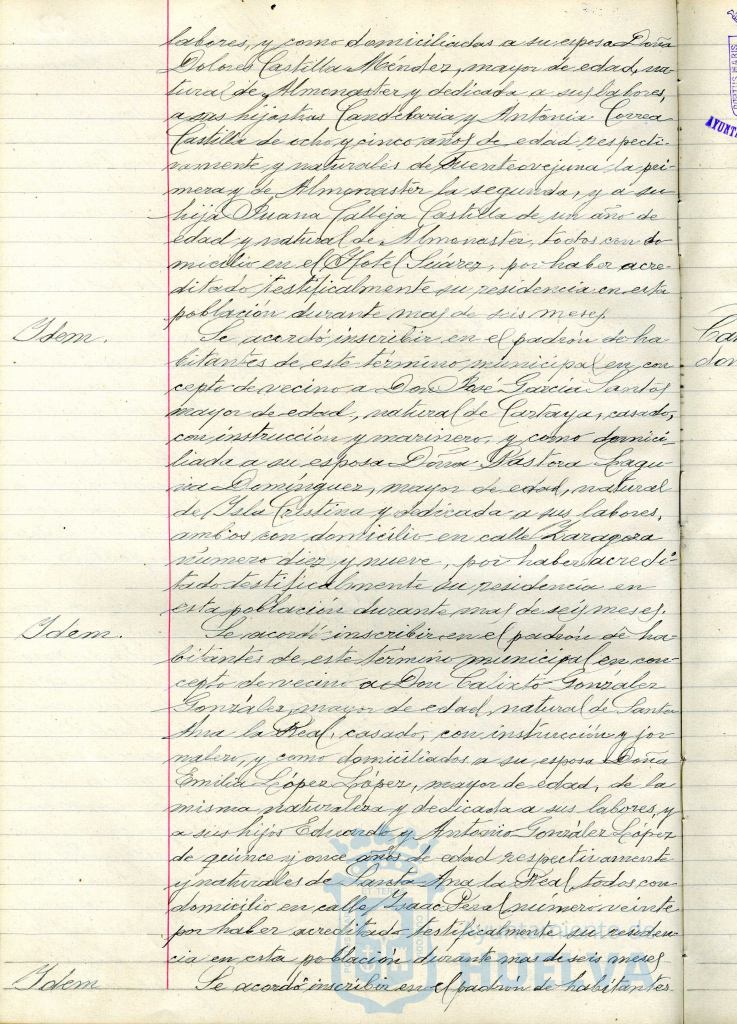 labores, y como domiciliadas a su esposa Doña
Dolores Castilla Méndez, mayor de edad, na-
tural de Almonaster y dedicada a sus labores,
a sus hijastras Candelaria y Antonia Correa
Castilla de ocho y cinco años de edad respecti-
vamente y naturales de Fuenteovejuna la pri-
mera y de Almonaster la segunda, y a su
hija Juana Calleja Castilla de un año de
edad y natural de Almonaster, todos con do-
micilio en el Hotel Suárez, por haber acre-
ditado testificalmente su residencia en esta
población durante mas de seis meses.
Idem.
Se acordó inscribir en el padrón de ha-
bitantes de este término municipal en con-
cepto de vecino a Don José García Santos
mayor de edad, natural de Cartaya, casado,
con instrucción y marinero, y como domici-
liada a su esposa Doña Pastora Lagu-
na Domínguez, mayor de edad, natural
de Isla Cristina y dedicada a sus labores,
ambos con domicilio en calle Zaragoza
número diez y nueve, por haber acredi-
tado testificalmente su residencia en
esta población durante mas de seis meses.
Idem.
Se acordó inscribir en el padrón de ha-
bitantes de este término municipal en con-
cepto de vecino a Don Calixto González
González, mayor de edad, natural de Santa
Ana la Real, casado, con instrucción y jor-
nalero, y como domiciliados a su esposa Doña
Emilia López López, mayor de edad, de la
misma naturaleza y dedicada a sus labores, y
a sus hijos Eduardo y Antonio González López
de quince y once años de edad respectivamente
y naturales de Santa Ana la Real, todos con
domicilio en calle Isaac Peral número veinte
por haber acreditado testificalmente su residen-
cia en esta población durante mas de seis meses
Idem
Se acordó inscribir en el padron de habitantes
Ayuntamiento de
HUELVA